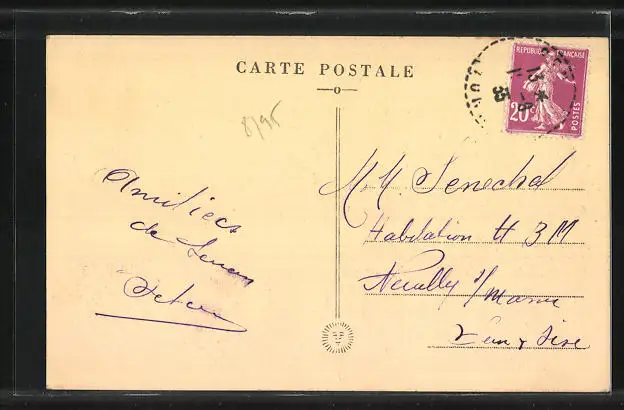 CARTE POSTALE
REPUBLIQUE FRANÇAISE
20c
POSTES
13
35
8/95
Amitiés
de
M. M. Senechal
Habitation H 3 M
Neuilly s/Marne
Seine & Oise